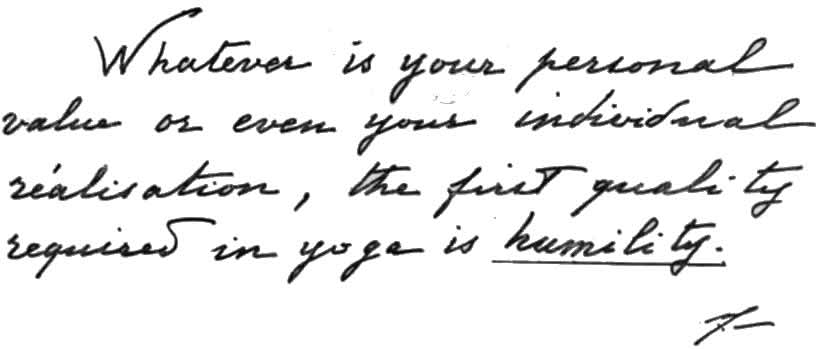 Whatever is your personal
value or even your individual
réalisation, the first quality
required in yoga is humility.